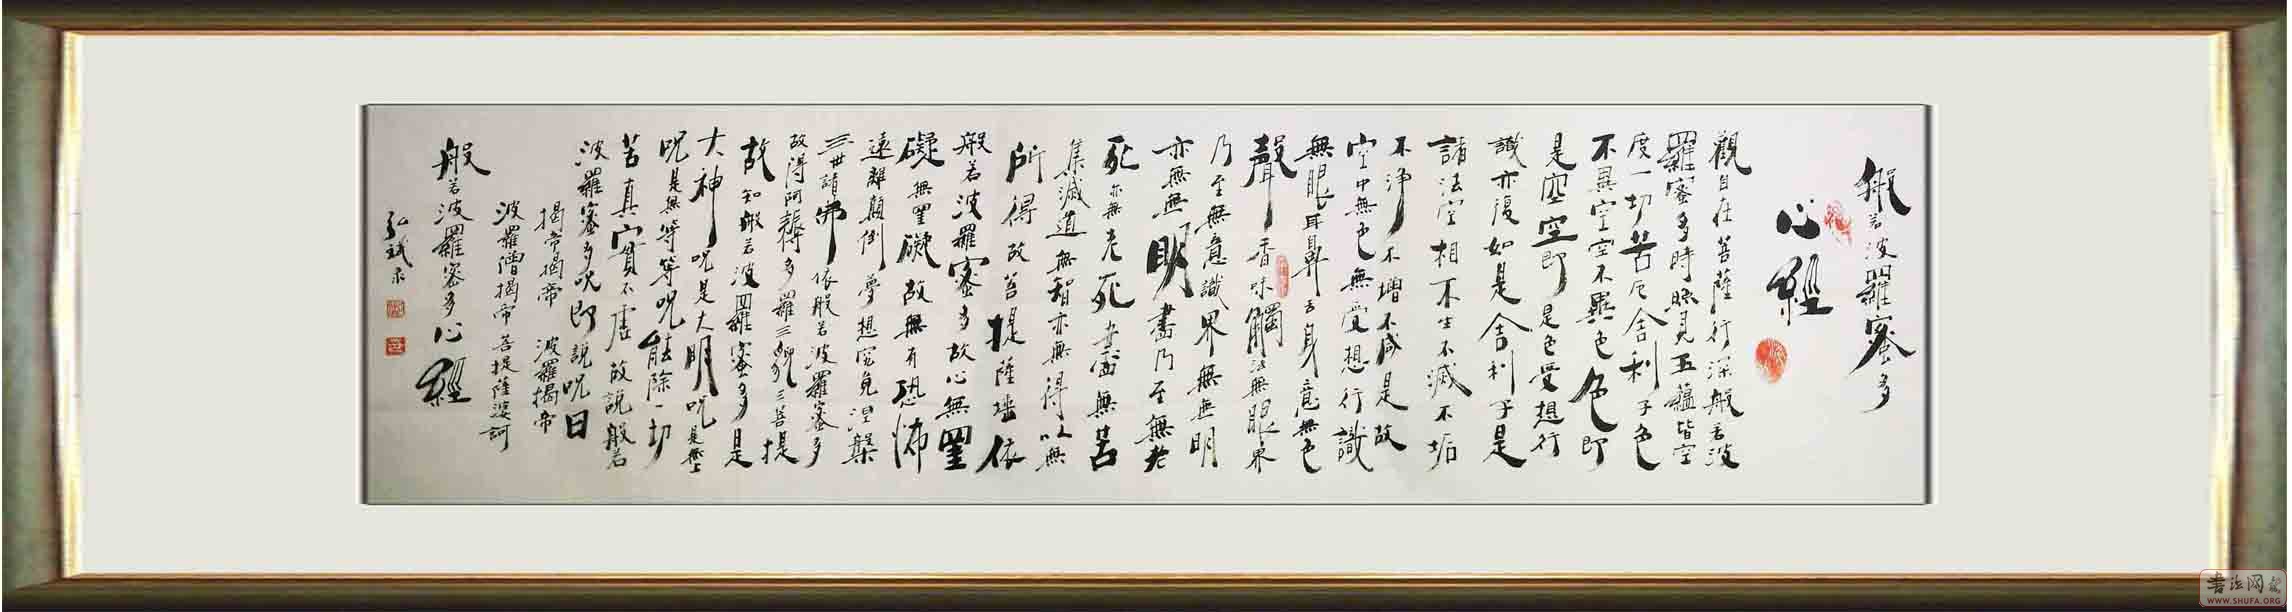 般若波羅蜜多
心經
觀自在菩薩行深般若波
羅蜜多時照見五蘊皆空
度一切苦厄舍利子色
不異空空不異色色即
是空空即是色受想行
識亦復如是舍利子是
諸法空相不生不滅不垢
不淨不增不減是故
空中無色無受想行識
無眼耳鼻舌身意無色
聲香味觸法無眼界
乃至無意識界無無明
亦無無明盡乃至無老
死亦無老死盡無苦
集滅道無智亦無得以無
所得故菩提薩埵依
般若波羅蜜多故心無罣
礙無罣礙故無有恐怖
遠離顛倒夢想究竟涅槃
三世諸佛依般若波羅蜜多
故得阿耨多羅三藐三菩提
故知般若波羅蜜多是
大神咒是大明咒是無上
咒是無等等咒能除一切
苦真實不虛故說般若
波羅蜜多咒即說咒曰
揭帝揭帝 波羅揭帝
波羅僧揭帝菩提薩婆訶
般若波羅蜜多心經
弘斌
書法网
WWW.SHUFA.ORG